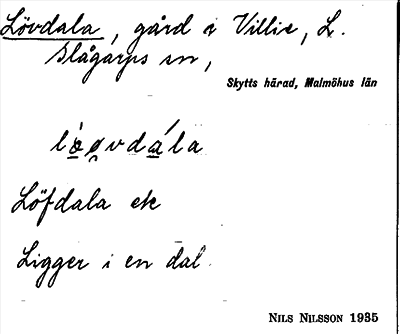 Lövdala, gård i Villie, L.
Slågarps sn,
Skytts härad, Malmöhus län
Löfdala ek
Ligger i en dal
NILS NILSSON 1935